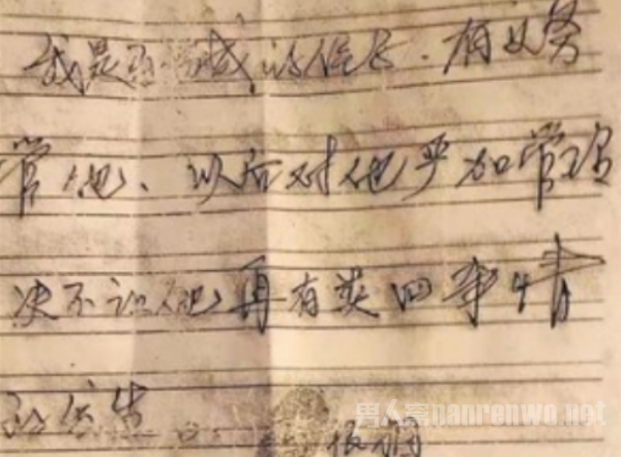 我是 的家长.有义务
管他、以后对他严加管理
决不让他再有类四事情
的发生
男人窝nanrenwo.net